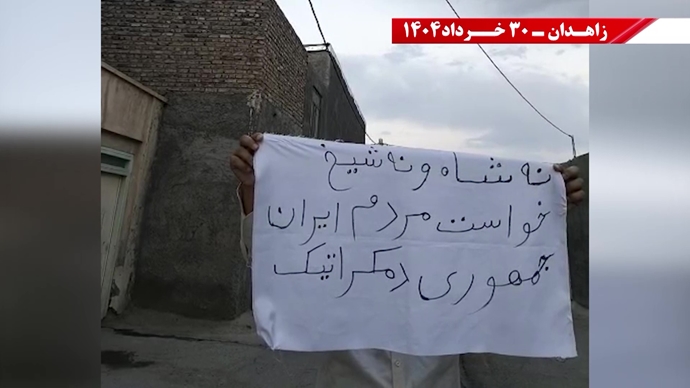 زاهدان ـ ۳۰ خـرداد۱۴۰۴
نه شاه و نه شیخ
خواست مردم ایران
جمهوری دمکراتیک